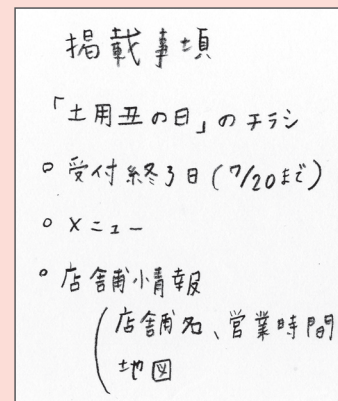 掲載事項
「土用丑の日」のチラシ
○ 受付終了日(7/20まで)
○ メニュー
○ 店舗情報
(店舗名、営業時間
地図